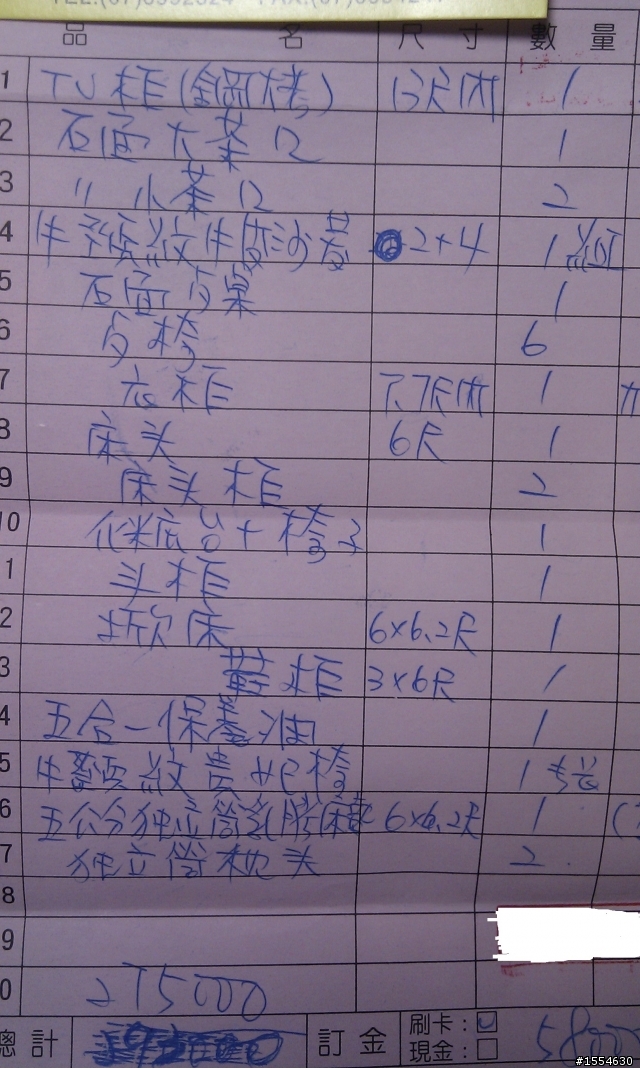 TEL:(07)3592824 FAX:(07)
品 名 尺 寸 數 量
1 TV柜(鋼烤) 13尺內 1
2 石面大茶几 1
3 〃 小茶几 2
4 牛頭紋牛皮沙發 2+4 1
5 石面方桌 1
6 方椅 6
7 衣柜 7.7尺內 1
8 床头 6尺 1
9 床头柜 2
10 化粧台+椅子 1
1 斗柜 1
2 掀床 6x6.2尺 1
3 鞋柜 3x6尺 1
4 五合一保養油 1
5 牛頭紋貴妃椅 1
6 五公分独立筒乳膠床 6x6.2尺 1
7 独立筒枕头 2
8
9
0 275000
總 計 訂 金 刷卡: 現金: 58000
#1554630